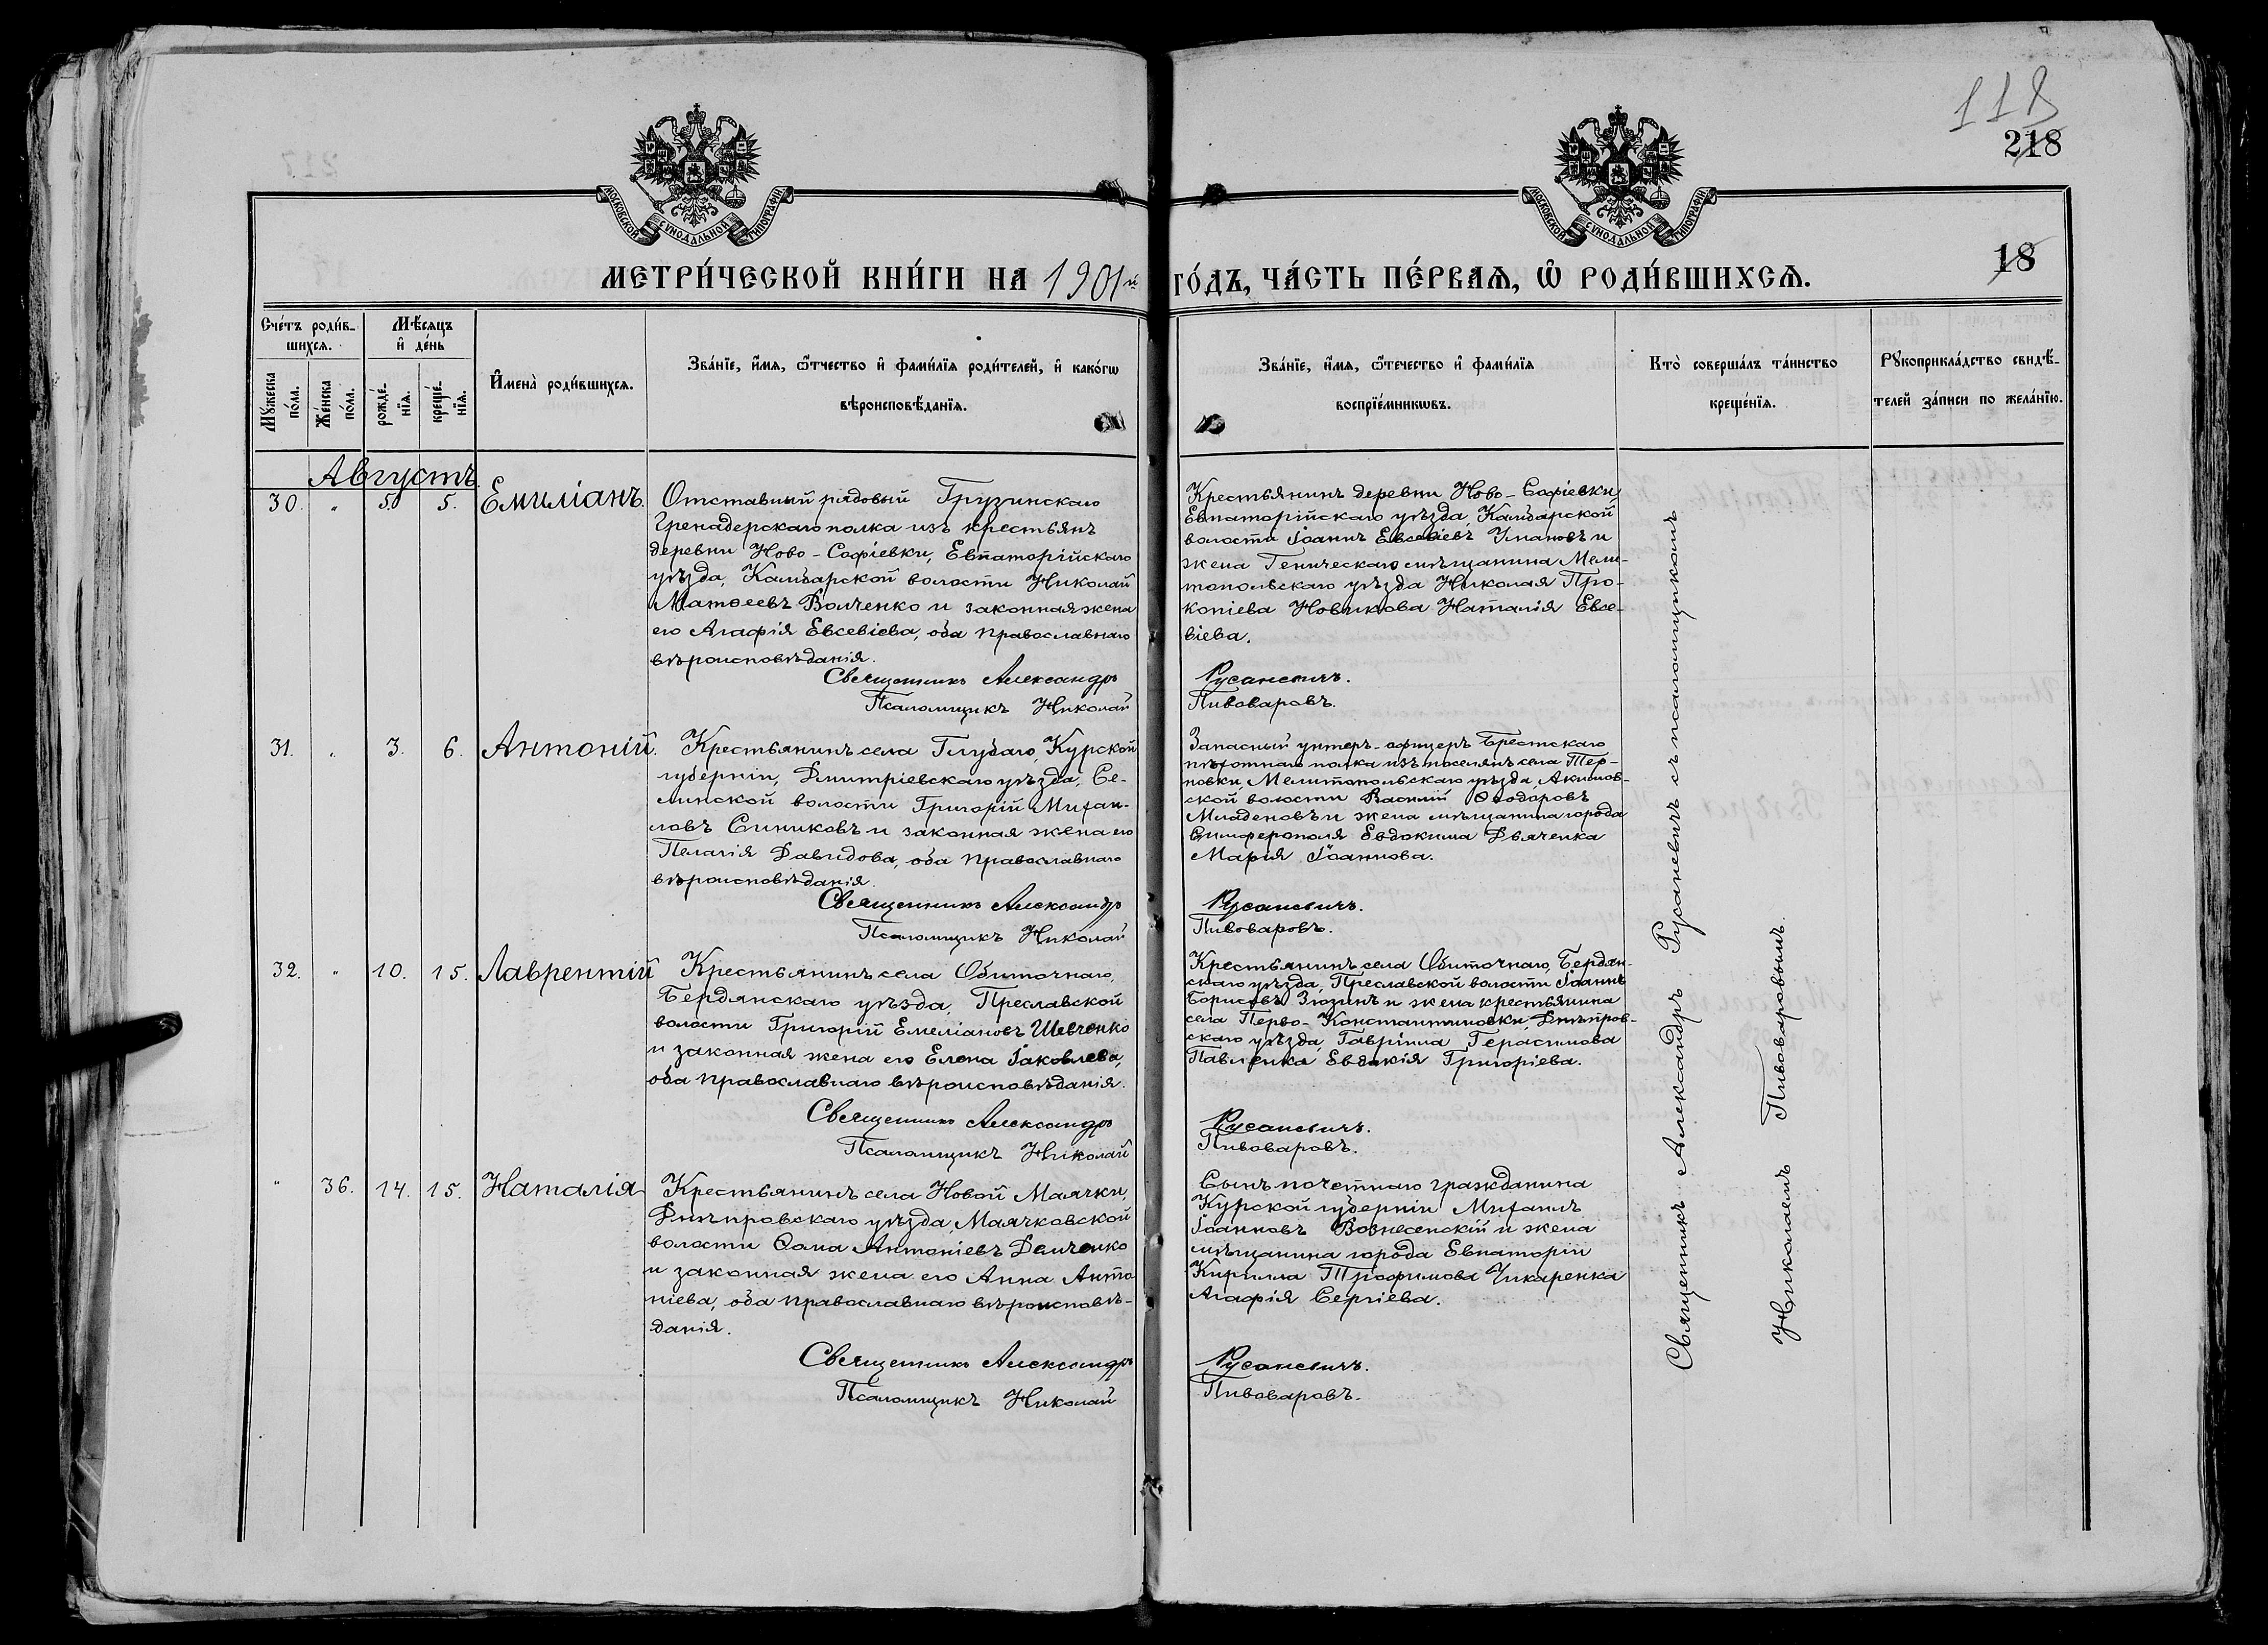 118
218
18
МОСКОВСКОЙ СѴНОДАЛЬНОЙ ТИПОГРАФІИ
МОСКОВСКОЙ СѴНОДАЛЬНОЙ ТИПОГРАФІИ
МЕТРИ́ЧЕСКОЙ КНИ́ГИ НА 1901й ГО́ДЪ, ЧА́СТЬ ПЕ́РВАѦ, Ѡ РОДИ́ВШИХСѦ.
Сче́тъ роди́в-
шихсѧ.
Мѣ́сѧцъ
и҆ де́нь
Мꙋжеска
по́ла.
Же́нска
по́ла.
рожде́-
нїѧ.
креще́-
нїѧ.
И҆мена̀ роди́вшихсѧ.
Зва́нїе, и҆́мѧ, ѻ҆́тчество и҆ фами́лїѧ роди́телей, и҆ како́гѡ
вѣроисповѣ́данїѧ.
Зва́нїе, и҆́мѧ, ѻ҆́течество и҆ фами́лїѧ
воспрїе́мникѡвъ.
Кто̀ соверша́лъ та́инство
креще́нїѧ.
Рꙋкоприкла́дство свидѣ́-
телей за́писи по жела́нїю.
Августъ.
30. " 5. 5. Емиліанъ.
Отставный рядовый Грузинскаго
Гренадерскаго полка изъ крестьянъ
деревни Ново-Софіевки, Евпаторійскаго
уѣзда, Камбарской волости Николай
Матѳеевъ Волченко и законная жена
его Агафія Евсевіева, оба православнаго
вѣроисповѣданія.
Священникъ Александръ
Псаломщикъ Николай
Крестьянинъ деревни Ново-Софіевки,
Евпаторійскаго уѣзда, Камбарской
волости Іоаннъ Евсевіевъ Умановъ и
жена Геническаго мѣщанина Мели-
топольскаго уѣзда Николая Про-
копіева Новикова Наталія Евсе-
віева.
Русаневичъ.
Пивоваровъ.
31. " 3. 6. Антоній.
Крестьянинъ села Глубаго, Курской
губерніи, Дмитріевскаго уѣзда, Се-
линской волости Григорій Михаи-
ловъ Синиковъ и законная жена его
Пелагія Давидова, оба православнаго
вѣроисповѣданія.
Священникъ Александръ
Псаломщикъ Николай
Запасный унтеръ-офицеръ Брестскаго
пѣхотнаго полка изъ поселянъ села Тер-
новки, Мелитопольскаго уѣзда, Акимов-
ской волости Василій Ѳеодоровъ
Младеновъ и жена мѣщанина города
Симферополя Евдокима Дяченка
Марія Іоаннова.
Русаневичъ.
Пивоваровъ.
32. " 10. 15. Лаврентій
Крестьянинъ села Обиточнаго,
Бердянскаго уѣзда, Преславской
волости Григорій Емеліановъ Шевченко
и законная жена его Елена Іаковлева,
оба православнаго вѣроисповѣданія.
Священникъ Александръ
Псаломщикъ Николай
Крестьянинъ села Обиточнаго, Бердян-
скаго уѣзда, Преславской волости Іоаннъ
Борисовъ Зюзинъ и жена крестьянина
села Перво-Константиновки, Днѣпров-
скаго уѣзда, Гавріила Герасимова
Павленка Евдокія Григоріева.
Русаневичъ.
Пивоваровъ.
" 36. 14. 15. Наталія
Крестьянинъ села Новой Маячки,
Днѣпровскаго уѣзда, Маячковской
волости Ѳома Антоніевъ Демченко
и законная жена его Анна Анто-
ніева, оба православнаго вѣроисповѣ-
данія.
Священникъ Александръ
Псаломщикъ Николай
Сынъ почетнаго гражданина
Курской губерніи Михаилъ
Іоанновъ Вознесенскій и жена
мѣщанина города Евпаторіи
Кирилла Трофимова Чикаренка
Агафія Сергіева.
Русаневичъ.
Пивоваровъ.
Священникъ Александръ Русаневичъ съ псаломщикомъ
Николаемъ Пивоваровымъ.